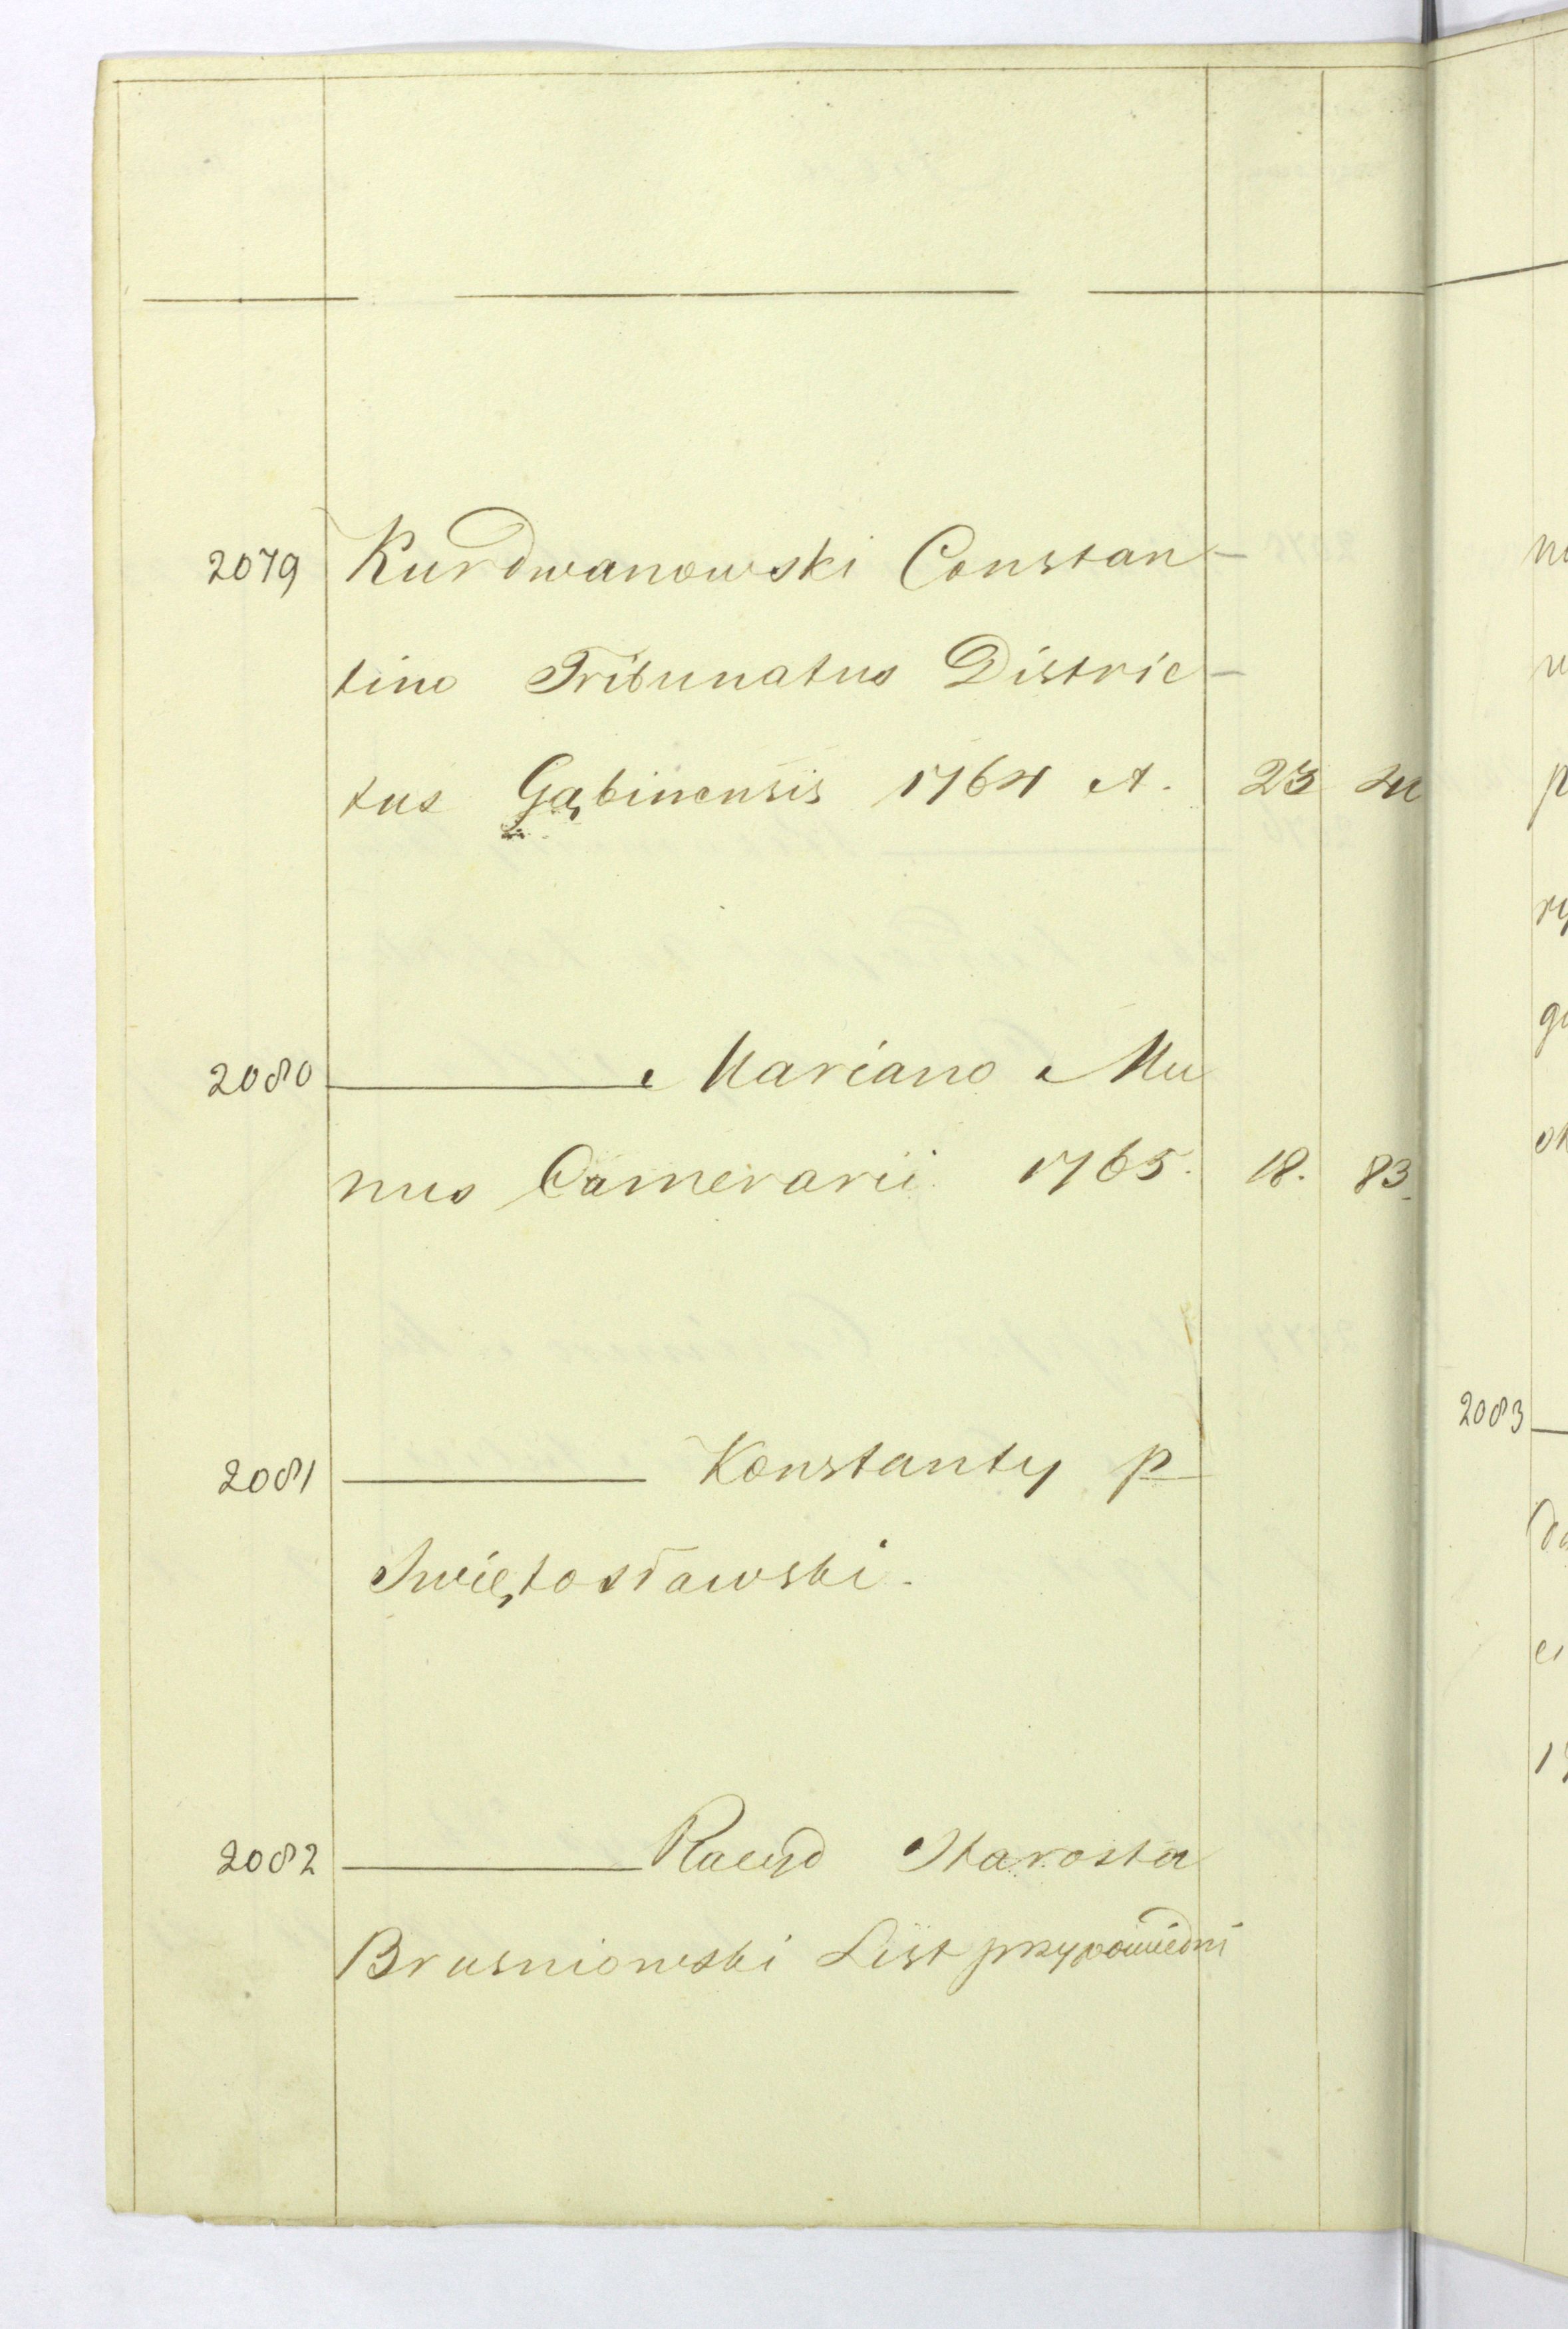 2079 Kurdwanowski Constan-
tino Tribunatus Distric-
tus Gąbinensis 1764 A. 23
2080 ——— Mariano Mu
nus Camerarii 1765. 18. 83
2081 ——— Konstanty p
Swiętosławski.
2082 ——— Starosta
Brusniowski List przypowiedni
2083